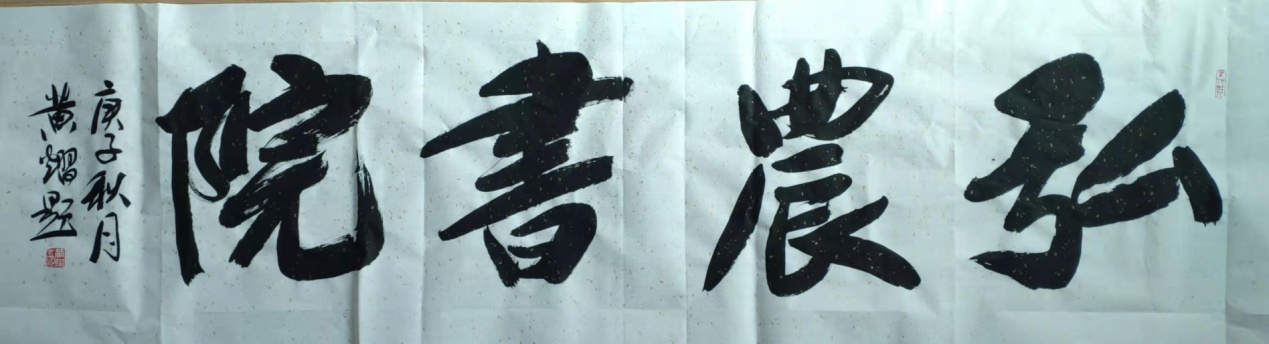 弘農書院
庚子秋月
黄熠題